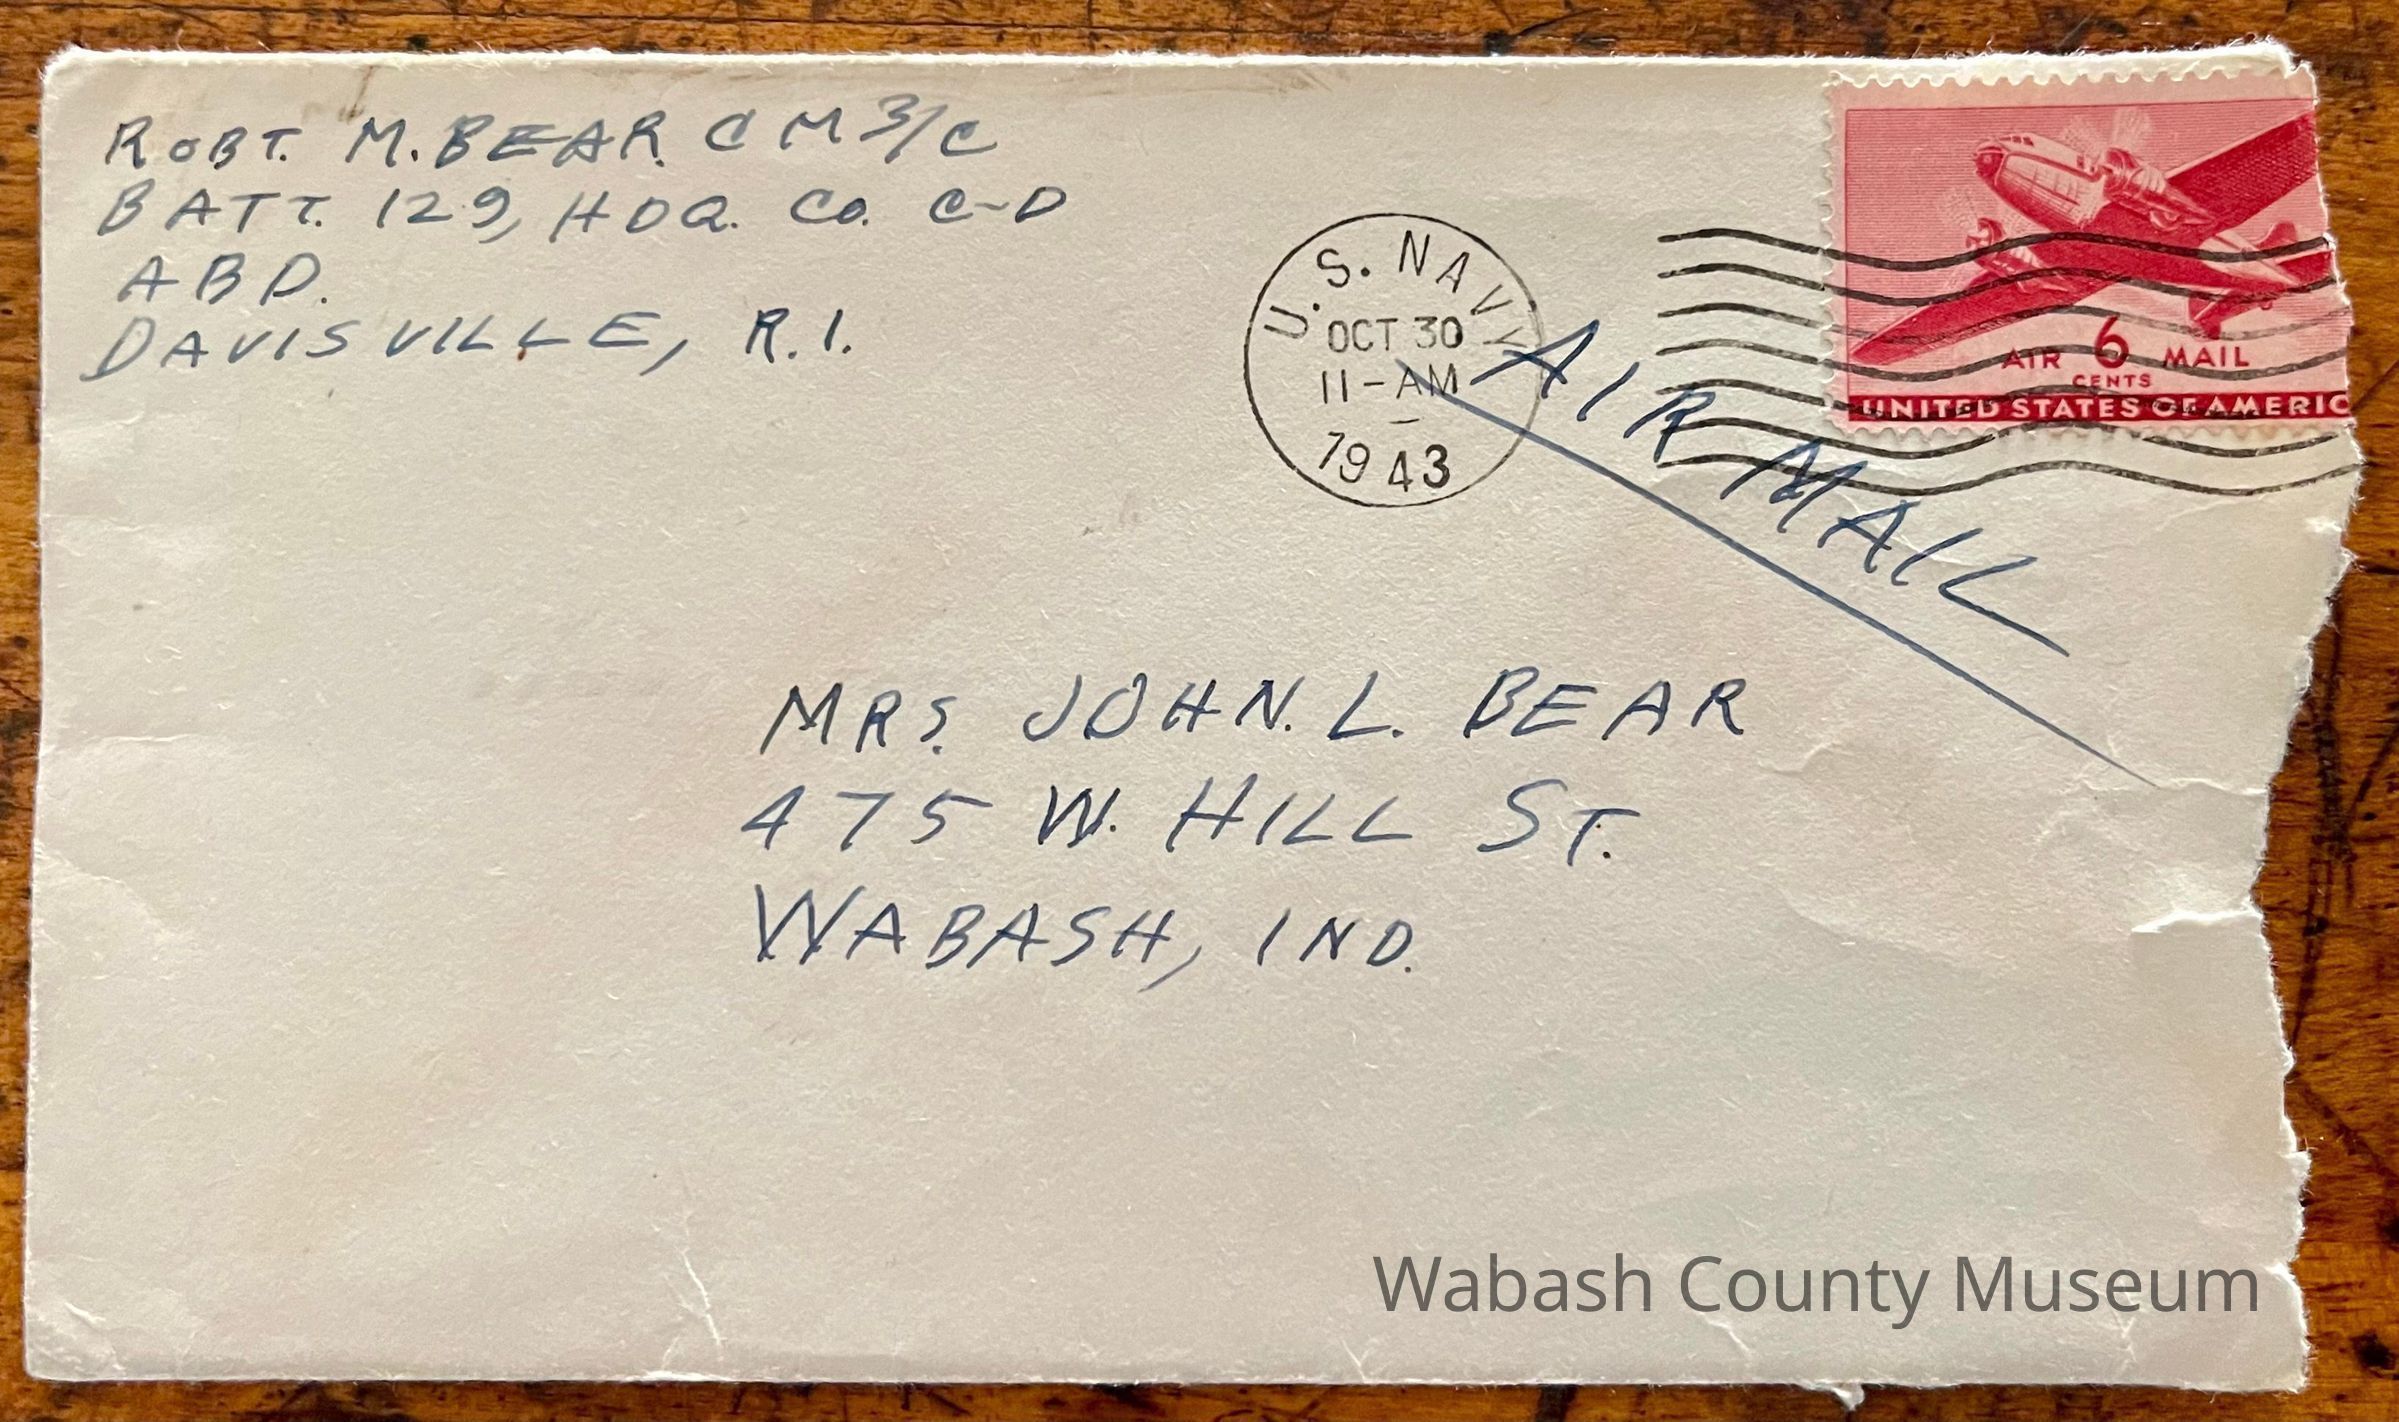 ROBT. M. BEAR CM 3/C
BATT. 129, HDQ. CO. C-D
ABD.
DAVISVILLE, R.I.
U.S. NAVY
OCT 30
11-AM
1943
AIR 6 MAIL
CENTS
UNITED STATES OF AMERIC
AIR MAIL
MRS. JOHN. L. BEAR
475 W. HILL ST.
WABASH, IND.
Wabash County Museum